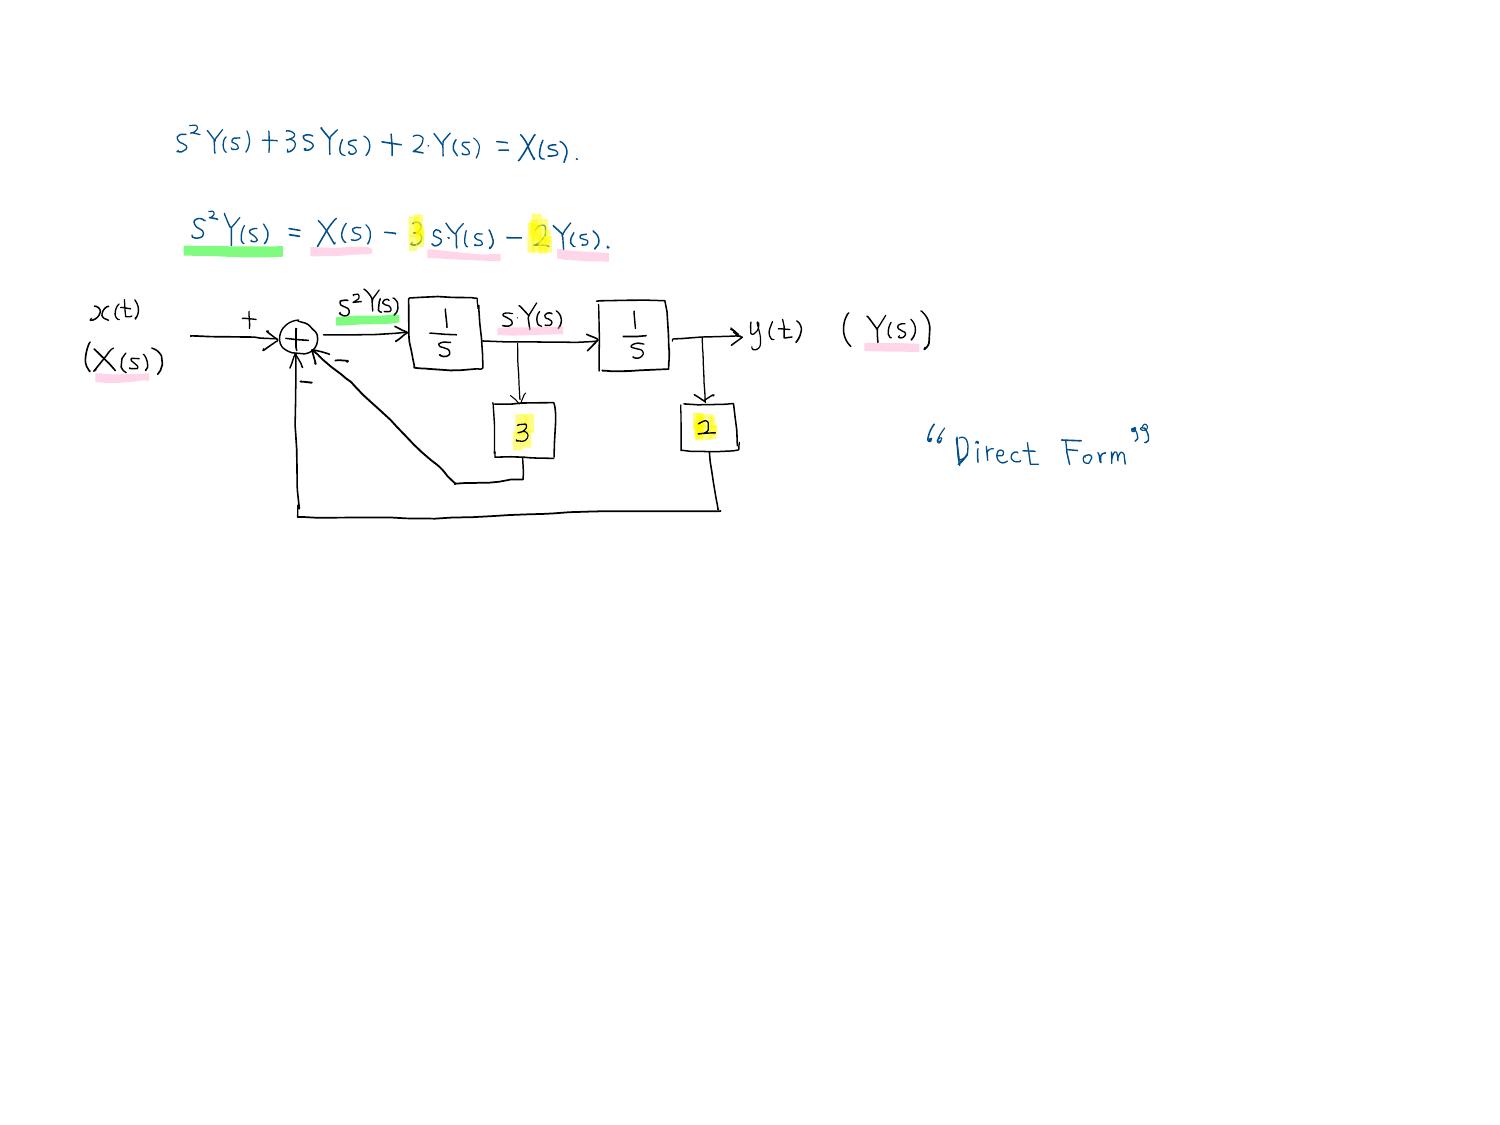 S²Y(s) + 3sY(s) + 2·Y(s) = X(s).
S²Y(s) = X(s) - 3s·Y(s) - 2Y(s).
x(t)
(X(s))
+
+
-
-
S²Y(s)
1/s
s·Y(s)
1/s
y(t) (Y(s))
3
2
“Direct Form”